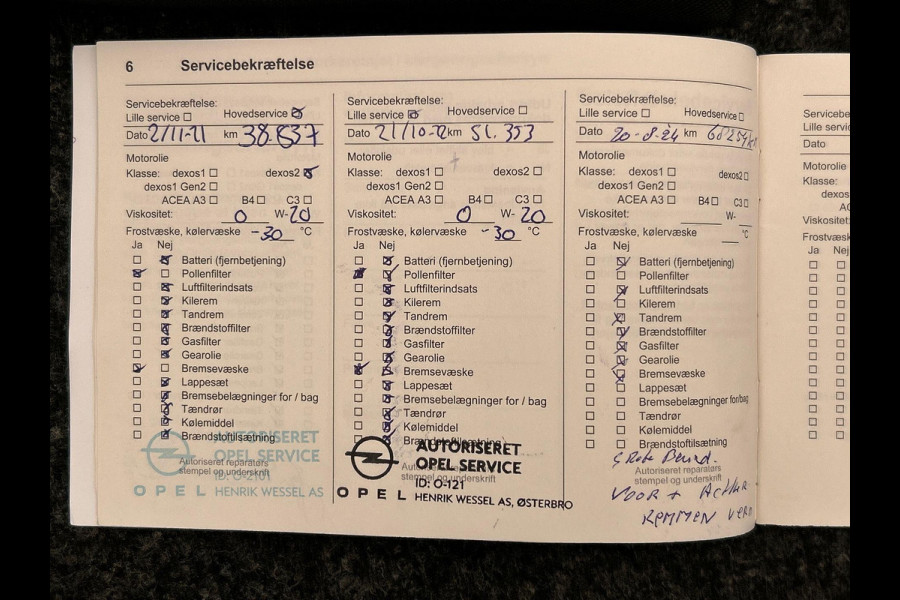 6 Servicebekræftelse
Servicebekræftelse:
Lille service Hovedservice
Dato 2/11-21 km 38.837
Motorolie
Klasse: dexos1 dexos2
dexos1 Gen2
ACEA A3 B4 C3
Viskositet: 0 W-20
Frostvæske, kølervæske -30 °C
Ja Nej
Batteri (fjernbetjening)
Pollenfilter
Luftfilterindsats
Kilerem
Tandrem
Brændstoffilter
Gasfilter
Gearolie
Bremsevæske
Lappesæt
Bremsebelægninger for / bag
Tændrør
Kølemiddel
Brændstoftilsætning
Autoriseret reparatørs
stempel og underskrift
AUTORISERET
OPEL SERVICE
ID: O-2101
OPEL HENRIK WESSEL AS
Servicebekræftelse:
Lille service Hovedservice
Dato 21/10-22 km 51.353
Motorolie
Klasse: dexos1 dexos2
dexos1 Gen2
ACEA A3 B4 C3
Viskositet: 0 W-20
Frostvæske, kølervæske -30 °C
Ja Nej
Batteri (fjernbetjening)
Pollenfilter
Luftfilterindsats
Kilerem
Tandrem
Brændstoffilter
Gasfilter
Gearolie
Bremsevæske
Lappesæt
Bremsebelægninger for / bag
Tændrør
Kølemiddel
Brændstoftilsætning
Autoriseret reparatørs
stempel og underskrift
AUTORISERET
OPEL SERVICE
ID: O-121
OPEL HENRIK WESSEL AS, ØSTERBRO
Servicebekræftelse:
Lille service Hovedservice
Dato 20-8-24 km
Motorolie
Klasse: dexos1 dexos2
dexos1 Gen2
ACEA A3 B4 C3
Viskositet: W-
Frostvæske, kølervæske °C
Ja Nej
Batteri (fjernbetjening)
Pollenfilter
Luftfilterindsats
Kilerem
Tandrem
Brændstoffilter
Gasfilter
Gearolie
Bremsevæske
Lappesæt
Bremsebelægninger for/bag
Tændrør
Kølemiddel
Brændstoftilsætning
Grote Beurt.
Autoriseret reparatørs
stempel og underskrift
Voor + Achter
Remmen
Dato
Motorolie
Klasse:
Viskositet:
Ja Nej